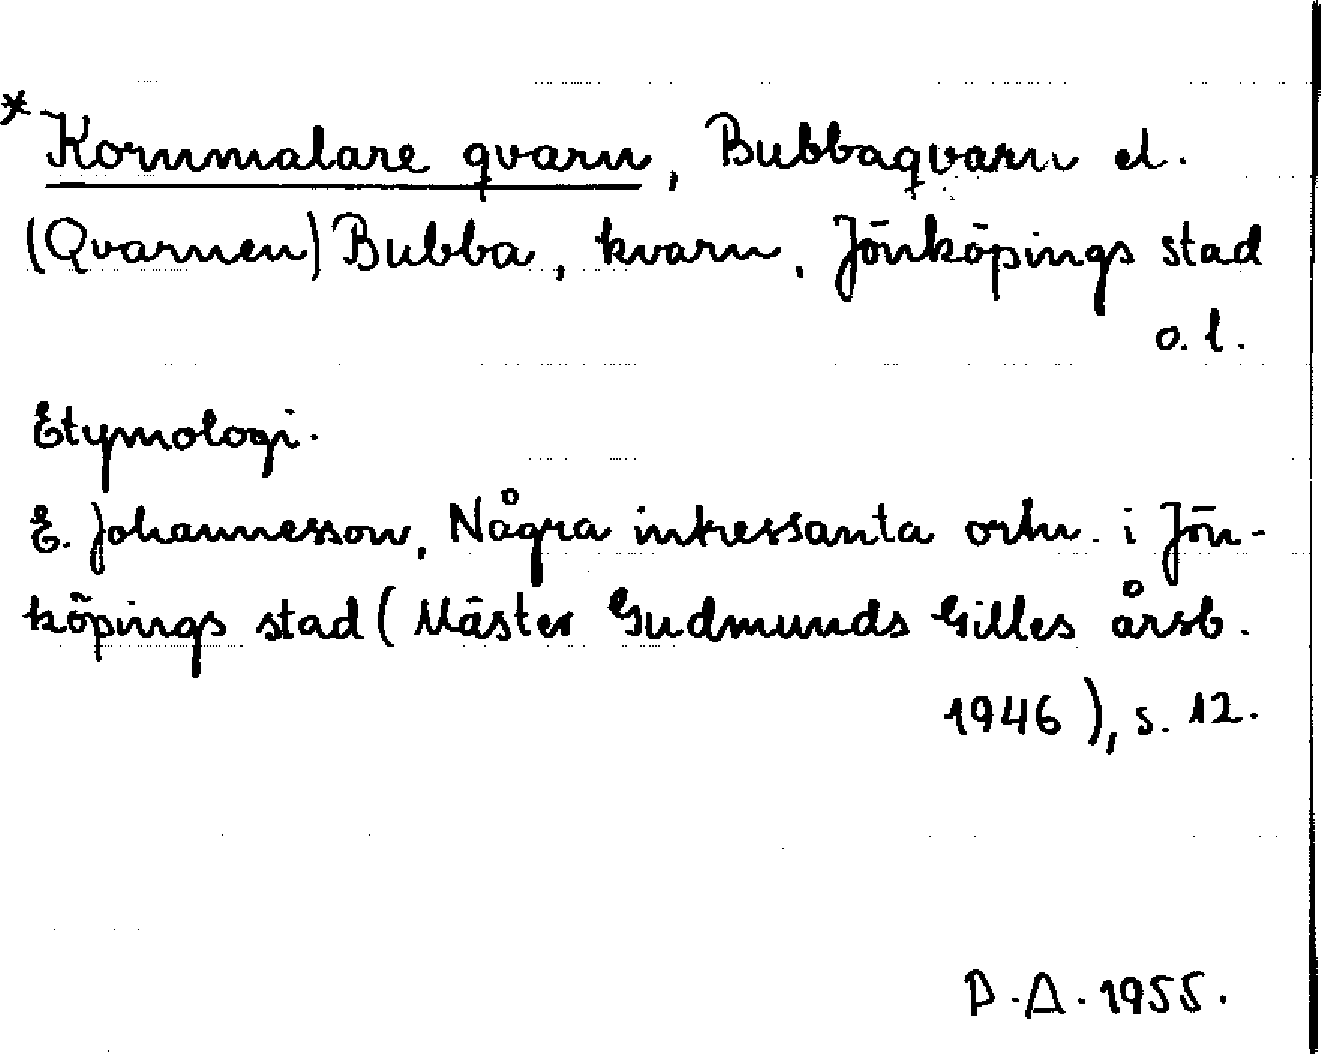 * Kornmalare qvarn, Bubbaqvarn el.
(Qvarnen) Bubba, kvarn, Jönköpings stad
o. l.
Etymologi.
E. Johannesson, Några intressanta ortn. i Jön-
köpings stad (Mäster Gudmunds Gilles årsb.
1946), s. 12.
D. A. 1955.